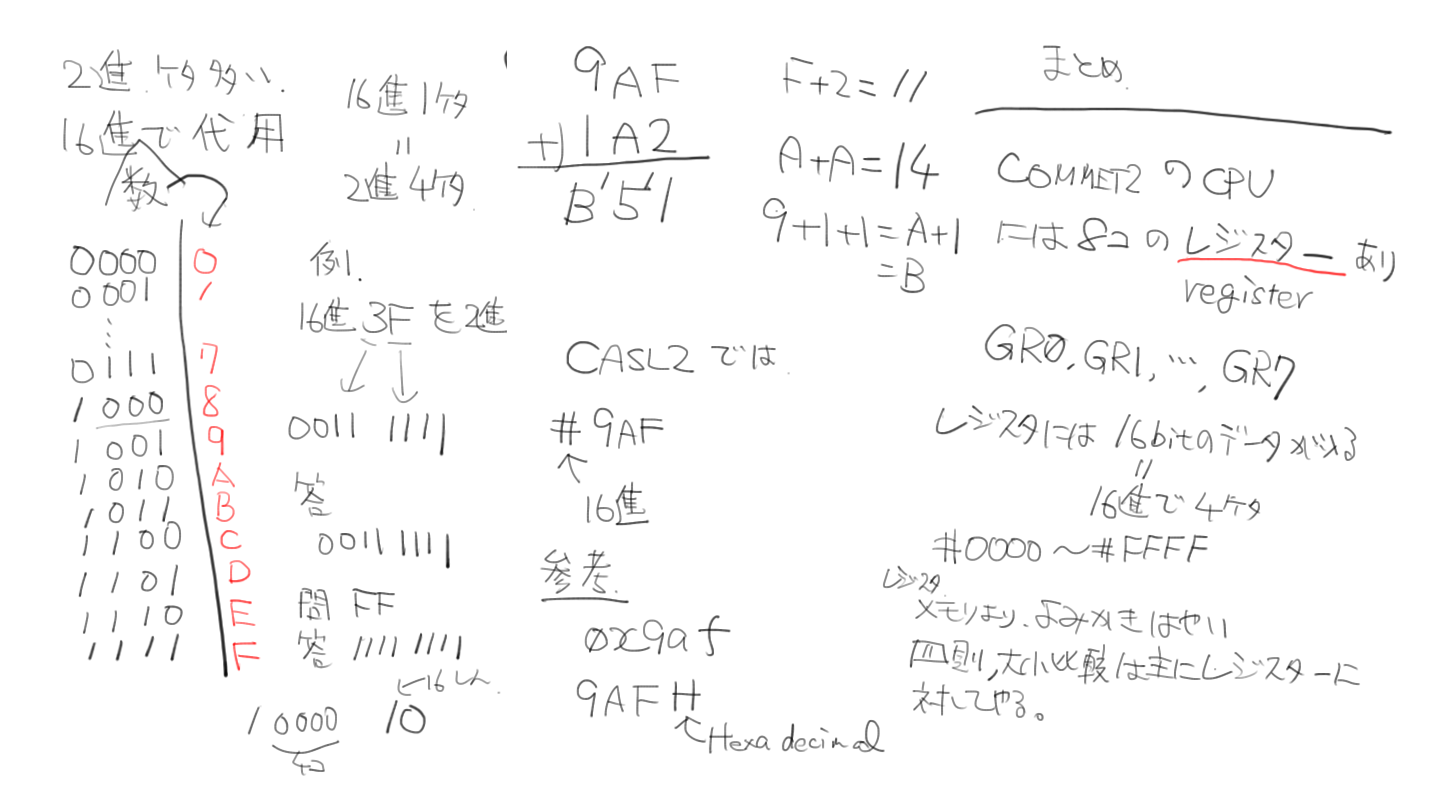 2進 ケタ多い.
16進で代用
1数
0000 0
0001 1
⋮
0111 7
1000 8
1001 9
1010 A
1011 B
1100 C
1101 D
1110 E
1111 F
10000 10
4コ
←16しん.
16進1ケタ
=
2進4ケタ
例.
16進 3Fを2進
0011 1111
答
0011 1111
問 FF
答 1111 1111
9AF
+)1A2
B'5'1
F+2=11
A+A=14
9+1+1=A+1
=B
CASL2では
#9AF
↑
16進
参考.
0x9af
9AFH
↑Hexa decimal
まとめ.
COMMET2のCPU
には8コのレジスターあり
register
GR0, GR1, …, GR7
レジスタには16bitのデータが入る
=
16進で4ケタ
#0000〜#FFFF
レジスタ
メモリより、よみかきはやい
四則,大小比較は主にレジスターに
対してやる。